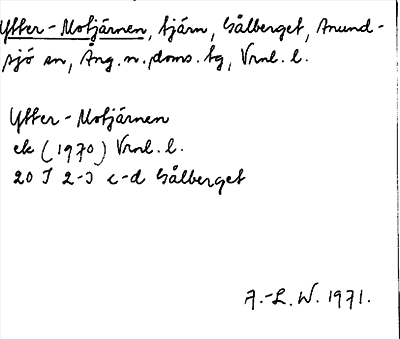 Ytter-Motjärnen, tjärn, Gålberget, Anund-
sjö sn, Ång. n. doms. tg, Vrnl. l.
Ytter-Motjärnen
ek (1970) Vrnl. l.
20 J 2-3 c-d Gålberget
A.-L. W. 1971.